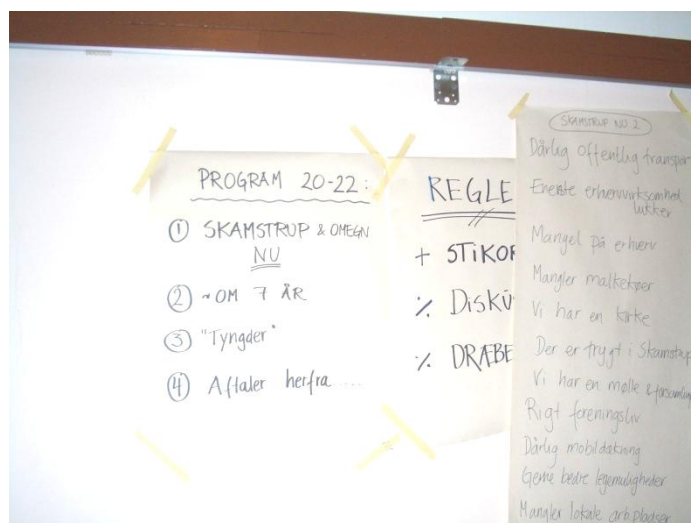 PROGRAM 20-22:
① SKAMSTRUP & OMEGN
NU
② ~ OM 7 ÅR
③ "Tyngder"
④ Aftaler herfra.....
REGLE
+ STIKOR
٪ DISKU
٪ DRÆBE
SKAMSTRUP NU 2
Dårlig offentlig transport
Eneste erhvervsvirksomhed
lukker
Mangel på erhverv
Mangler malkekøer
Vi har en kirke
Der er trygt i Skamstrup
Vi har en mølle & forsamling
Rigt foreningsliv
Dårlig mobildækning
Gerne bedre legemuligheder
Mangler lokale arb.pladser